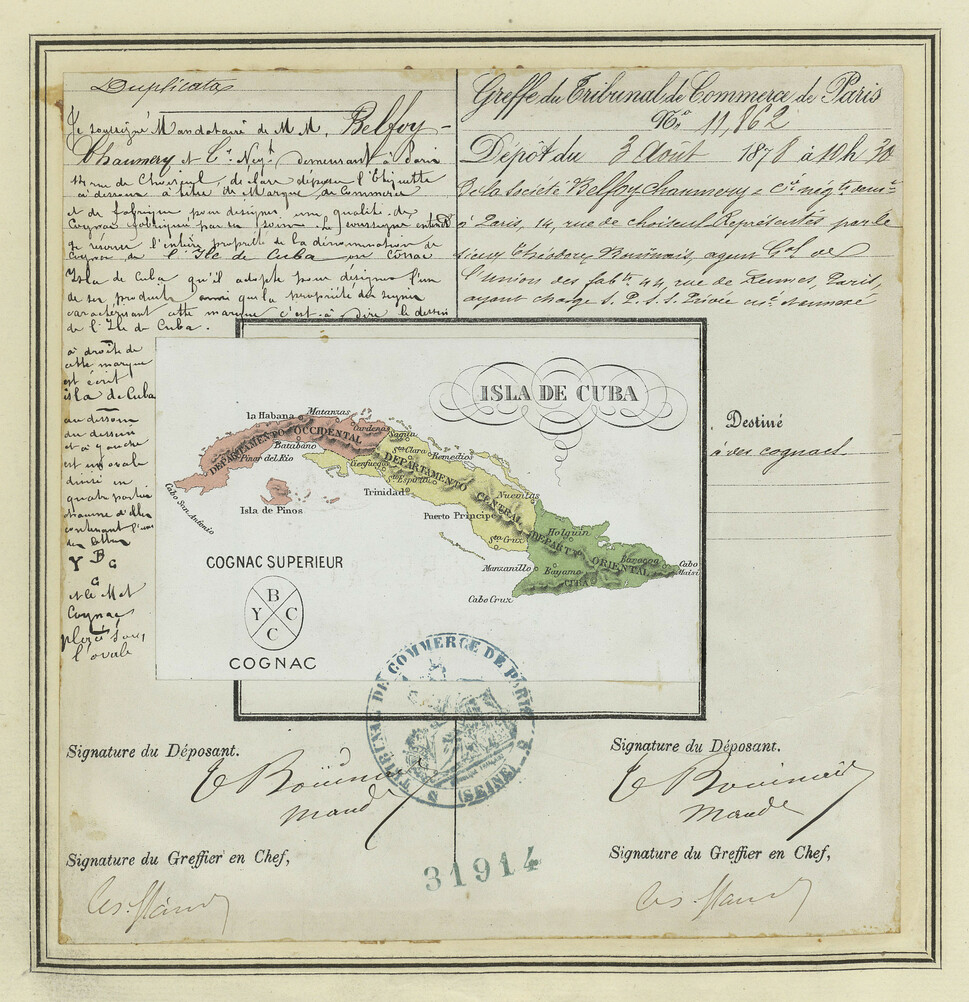 Duplicata
Je soussigné Mandataire de MM. Belfoy-
Chaumery et Cie Negts demeurant à Paris
14 rue de Choiseul, déclare déposer l'Etiquette
ci dessous à titre de Marque de Commerce
et de fabrique pour désigner une qualité de
Cognac fabriqué par ses soins. Le soussigné entend
se réserver l'entière propriété de la dénomination de
Cognac de l'Ile de Cuba ou Cognac
Isla de Cuba qu'il adopte pour désigner l'un
de ses produits ainsi que la propriété des signes
caractérisant cette marque c'est à dire le dessin
de l'Ile de Cuba.
à droite de
cette marque
est écrit
isla de Cuba
au dessous
du dessin
et à gauche
est un ovale
divisé en
quatre parties
chacune d'elles
contenant l'une
des lettres
Y B C
C
et le Mot
Cognac
placé sous
l'ovale
Greffe du Tribunal de Commerce de Paris
No. 11,862
Dépôt du 3 Août 1878 à 10h 30
De la société Belfoy Chaumery & Cie négts demt
à Paris, 14, rue de choiseul Représentés par le
sieur Théodore, agent Gal de
l'union des fabts 44, rue de Rennes, Paris,
ayant charge S. P. S. S. Privé
Destiné
à des cognacs
ISLA DE CUBA
la Habana
Matanzas
Cardenas
Sagua
DEPARTAMENTO OCCIDENTAL
Batabano
Pinar del Rio
Cienfuegos
Sta Clara
Remedios
DEPARTAMENTO CENTRAL
Sto Espiritu
Trinidad
Nuevitas
Cabo San Antonio
Isla de Pinos
Puerto Principe
Sta Cruz
Holguin
DEPARTo ORIENTAL
Baracoa
Cabo Maisi
Manzanillo
Bayamo
CUBA
Cabo Cruz
COGNAC SUPERIEUR
B
Y C
C
COGNAC
TRIBUNAL DE COMMERCE DE PARIS
(SEINE)
Signature du Déposant.
Mand
Signature du Déposant.
Mand
31914
Signature du Greffier en Chef,
Signature du Greffier en Chef,